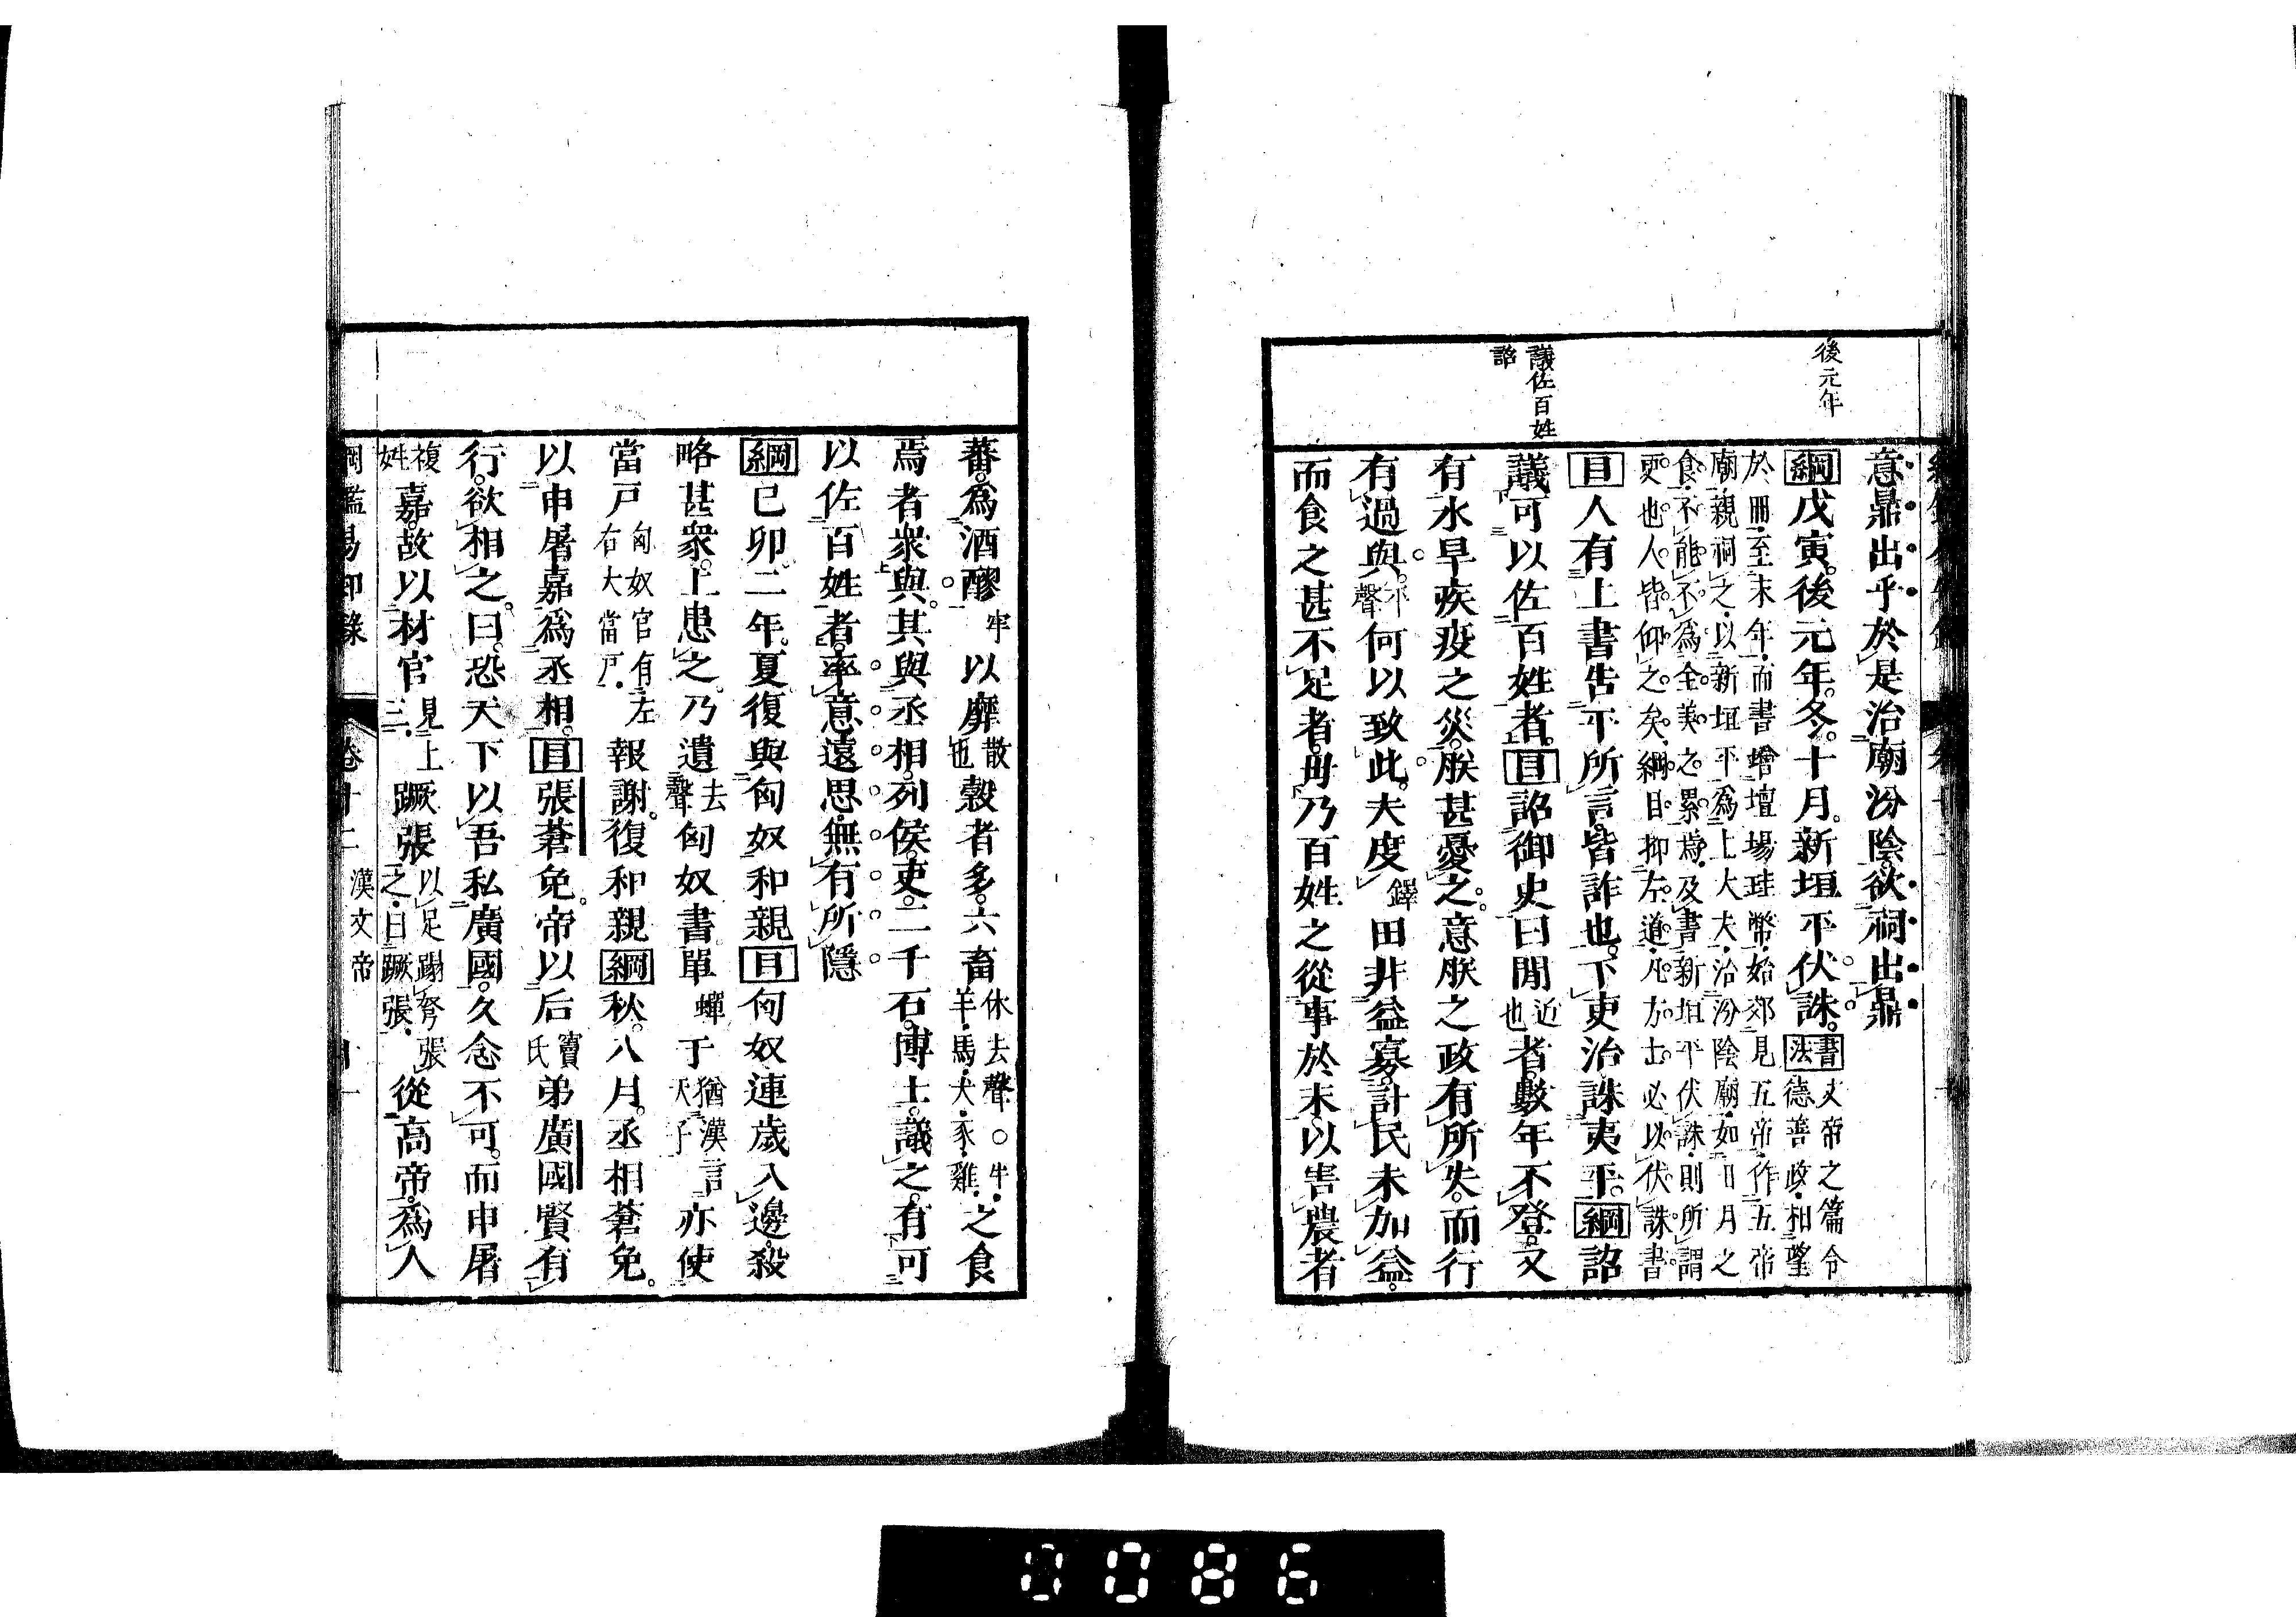 後元年
議佐百姓
詔
意鼎出乎於是治廟汾陰欲祠出鼎
綱戊寅後元年冬十月新垣平伏誅書法文帝之篇令德善政相望
於冊至末年而書增壇場珪幣始郊見五帝作五帝
廟親祠之以新垣平為上大夫治汾陰廟如日月之
食不能不為全美之累焉及書新垣平伏誅則所謂
更也人皆仰之矣綱目抑左道凡方士必以伏誅書
目人有上書告平所言皆詐也下吏治誅夷平綱詔
議可以佐百姓者目詔御史曰閒近也者數年不登又
有水旱疾疫之災朕甚憂之意朕之政有所失而行
有過與平聲何以致此夫度鐸田非益寡計民未加益
而食之甚不足者毋乃百姓之從事於末以害農者
蕃為酒醪牢以靡散也穀者多六畜休去聲○牛羊馬犬豕雞之食
焉者衆與其與丞相列侯吏二千石博士議之有可
以佐百姓者率意遠思無有所隱
綱己卯二年夏復與匈奴和親目匈奴連歲入邊殺
略甚衆上患之乃遺去聲匈奴書單蟬于猶漢言天子亦使
當戶匈奴官有左右大當戶報謝復和親綱秋八月丞相蒼免
以申屠嘉為丞相目張蒼免帝以后竇氏弟廣國賢有
行欲相之曰恐天下以吾私廣國久念不可而申屠
複姓嘉故以材官見上三蹶張以足蹋弩張之曰蹶張從高帝為人
綱鑑易知錄 卷十二 漢文帝